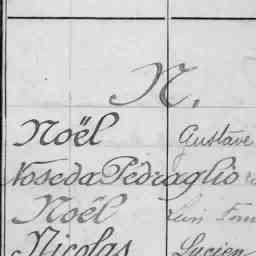 N.
Noël Gustave
Noseda Pedraglio
Noël
Nicolas Lucien